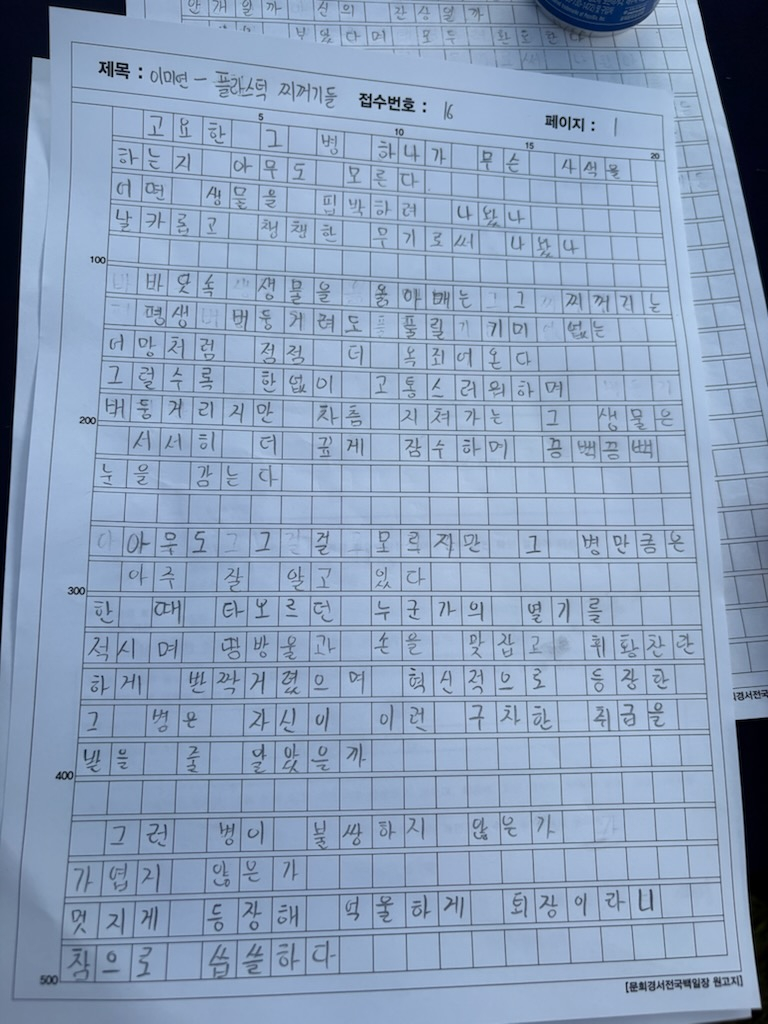 안개일까 신의 잔상일까
제목 : 이미연 - 플라스틱 찌꺼기들 접수번호 : 16 페이지 : 1
5 10 15 20
고요한 그 병 하나가 무슨 사색을
하는지 아무도 모른다
어떤 생물을 핍박하러 나왔나
날카롭고 챙챙한 무기로써 나왔나
100
바닷속 생물을 옭아매는 그 찌꺼기는
평생 버둥거려도 풀릴 기미 없는
어망처럼 점점 더 옥죄어온다
그럴수록 한없이 고통스러워하며
버둥거리지만 차츰 지쳐가는 그 생물은
200
서서히 더 깊게 잠수하며 끔뻑끔뻑
눈을 감는다
아무도 그걸 모르지만 그 병만큼은
아주 잘 알고 있다
300
한 때 타오르던 누군가의 열기를
적시며 땀방울과 손을 맞잡고 휘황찬란
하게 반짝거렸으며 혁신적으로 등장한
그 병은 자신이 이런 구차한 취급을
받을 줄 알았을까
400
그런 병이 불쌍하지 않은가
가엽지 않은가
멋지게 등장해 억울하게 퇴장이라니
참으로 씁쓸하다
500
[문희경서전국백일장 원고지]
희경서전국